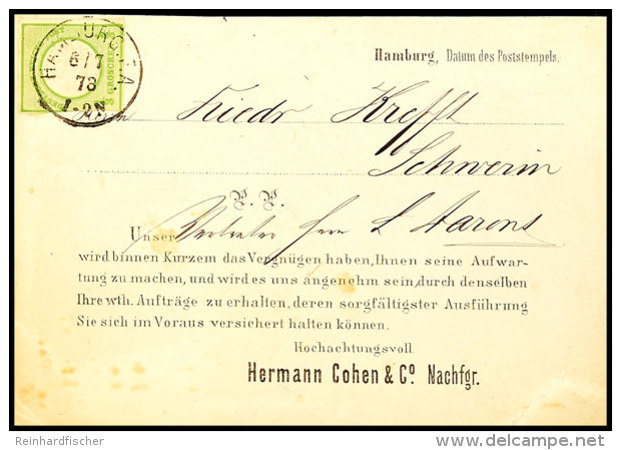 Hamburg, Datum des Poststempels.
HAMBURG I.A.
6/7
73
1-2N
GROSCHEN
Friedr Krefft
Schwerin
P. P.
Unser Vertreter Herr L Aarons
wird binnen Kurzem das Vergnügen haben, Ihnen seine Aufwar-
tung zu machen, und wird es uns angenehm sein, durch denselben
Ihre wth. Aufträge zu erhalten, deren sorgfältigster Ausführung
Sie sich im Voraus versichert halten können.
Hochachtungsvoll
Hermann Cohen & Co. Nachfgr.
Reinhardfischer
delcampe.net